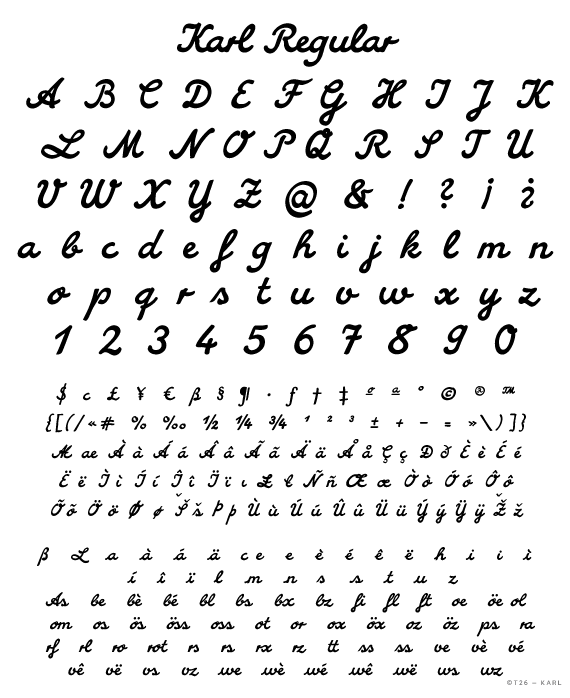 Karl Regular
A B C D E F G H I J K
L M N O P Q R S T U
V W X Y Z @ & ! ? ¡ ¿
a b c d e f g h i j k l m n
o p q r s t u v w x y z
1 2 3 4 5 6 7 8 9 0
$ c £ ¥ € ß § ¶ · ƒ † ‡ º ª ° © ® ™
{[(/«# % ‰ ½ ¼ ¾ ¹ ² ³ ± + − = »\)]}
Æ æ À à Á á Â â Ã ã Ä ä Å å Ç ç Ð ð È è É é
Ë ë Ì ì Í í Î î Ï ï ı Ł ł Ñ ñ Œ œ Ò ò Ó ó Ô ô
Õ õ Ö ö Ø ø Š š Þ þ Ù ù Ú ú Û û Ü ü Ý ý Ÿ ÿ Ž ž
ß L a à á ä c e e è é ê ë h i i ì
í î ï l m n s s t u z
As be bè bé bl bs bx bz fi fl ft oe öe ol
om os ös öss oss ot or ox öx oz öz ps ra
rf rl ro rot rs rs rx rz tt ss ss ve vè vé
vê vë vs vz we wè wé wê wë ws wz
©T26 – KARL